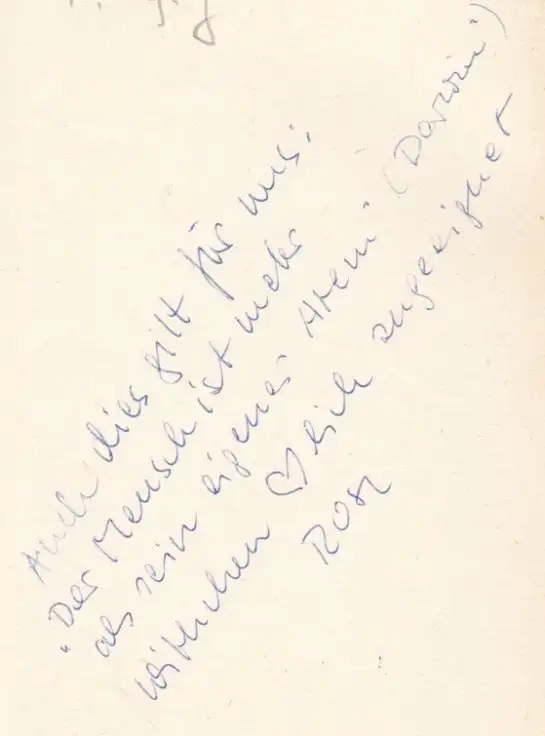 Auch dies gilt für uns:
"Der Mensch ist mehr
als sein eigener Atem" (Darwin")
♡lich zugeeignet